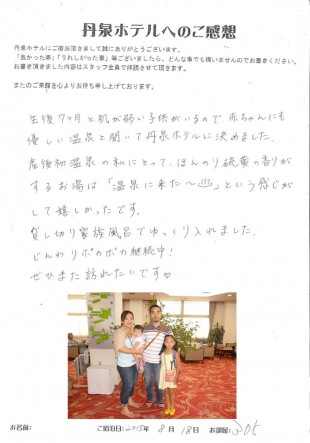 丹泉ホテルへのご感想
丹泉ホテルにご宿泊頂きまして誠にありがとうございます。
「良かった事」「うれしかった事」等ございましたら、どんな事でも構いませんのでお書きください。
お書き頂きました内容はスタッフ全員で拝読させて頂きます。
またのご来館を心よりお待ち申し上げております。
生後7ヶ月と肌が弱い子供がいるので赤ちゃんにも
優しい温泉と聞いて丹泉ホテルに決めました.
産後初温泉の私にとって、ほんのり硫黄の香りが
するお湯は「温泉に来た〜♨」という感じが
して嬉しかったです.
貸し切り家族風呂でゆっくり入れました.
じんわりポカポカ継続中!
ぜひまた訪れたいです
お名前:
ご宿泊日: 2015年 8月 18日 お部屋: 305